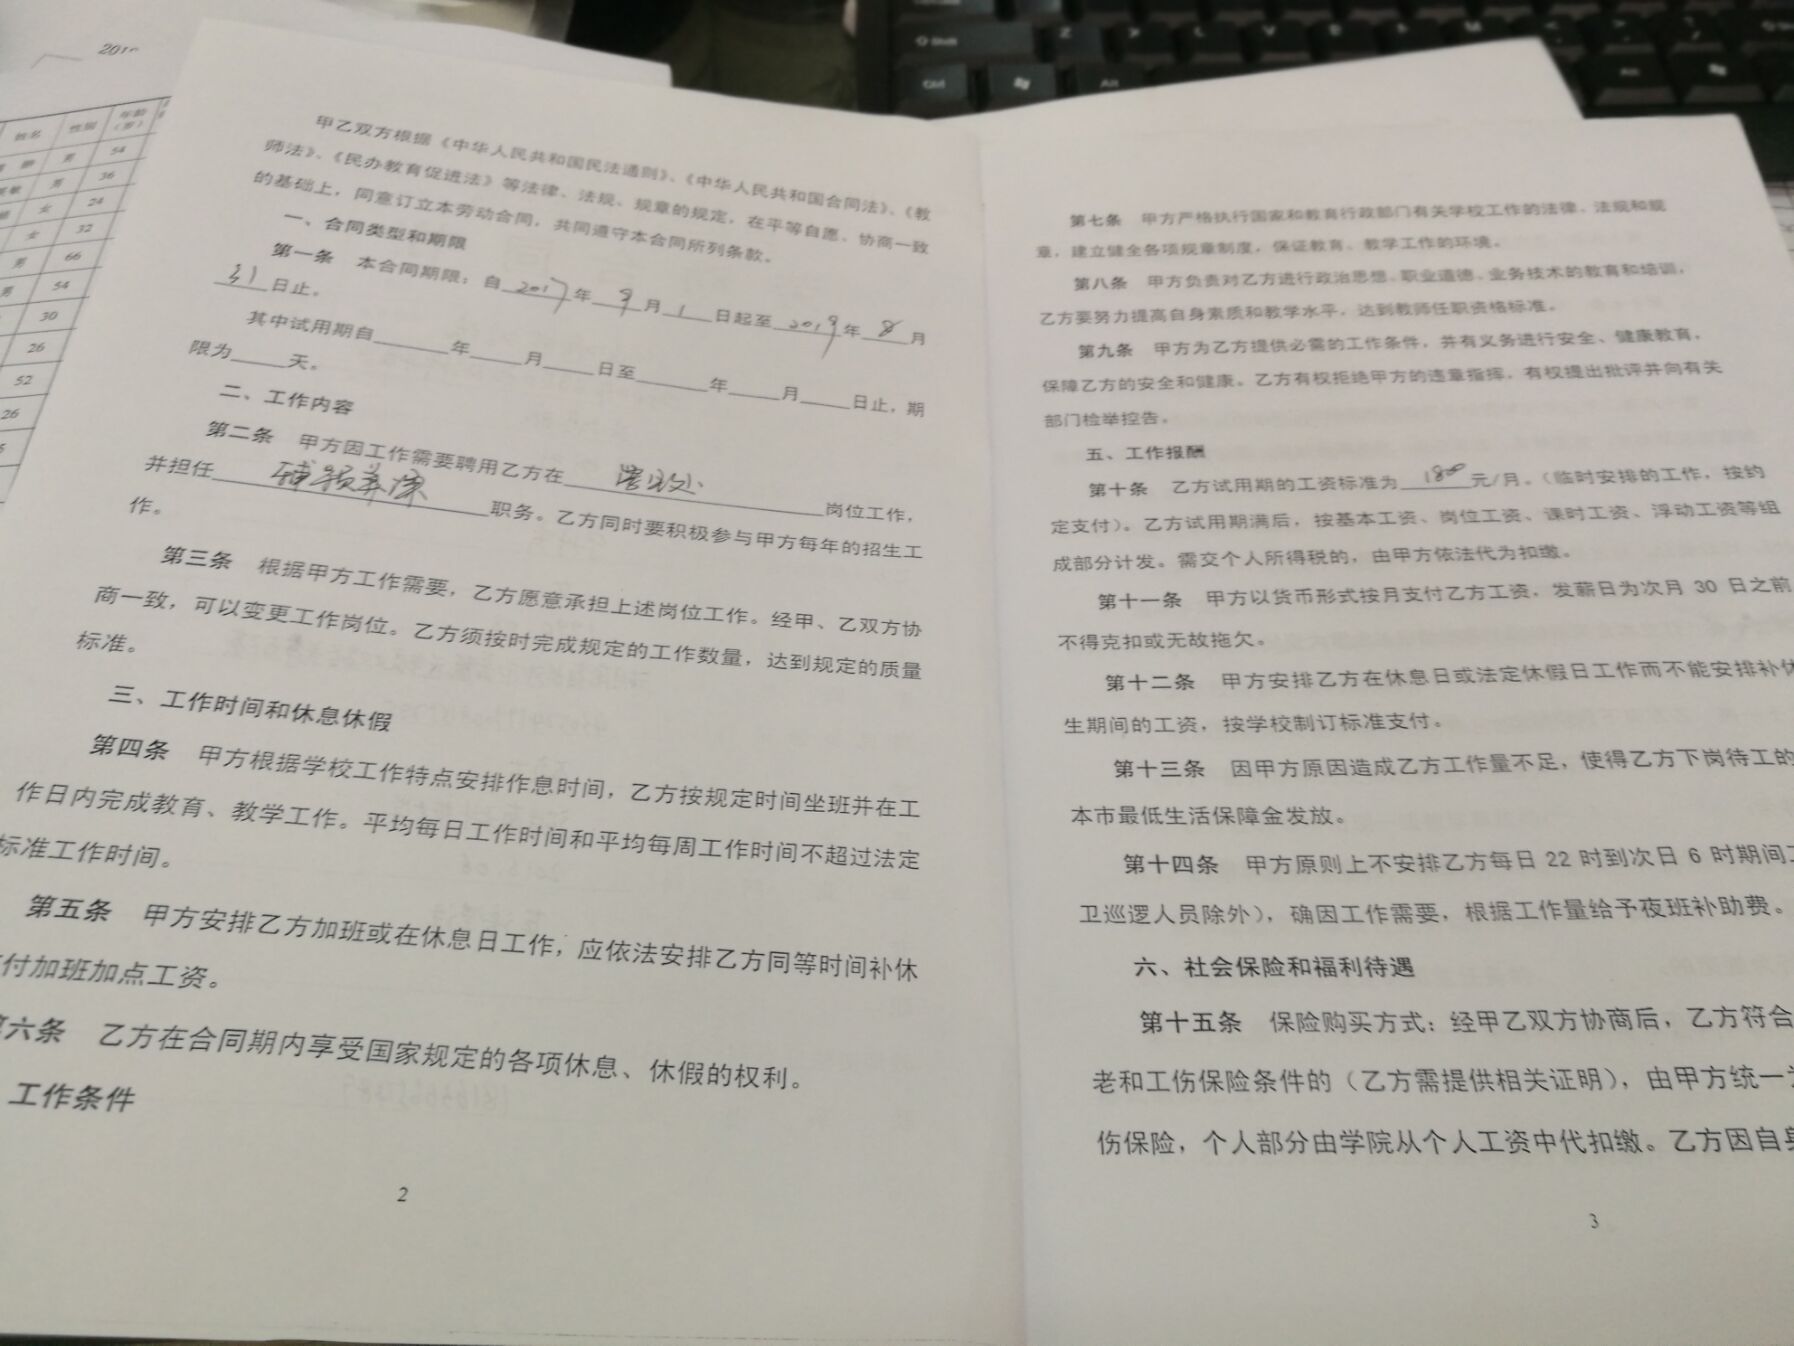 甲乙双方根据《中华人民共和国民法通则》、《中华人民共和国合同法》、《教
师法》、《民办教育促进法》等法律、法规、规章的规定，在平等自愿、协商一致
的基础上，同意订立本劳动合同，共同遵守本合同所列条款。
一、合同类型和期限
第一条 本合同期限：自2017年9月1日起至2019年8月
31日止。
其中试用期自____年____月____日至____年____月____日止，期
限为____天。
二、工作内容
第二条 甲方因工作需要聘用乙方在____岗位工作，
并担任____职务。乙方同时要积极参与甲方每年的招生工
作。
第三条 根据甲方工作需要，乙方愿意承担上述岗位工作。经甲、乙双方协
商一致，可以变更工作岗位。乙方须按时完成规定的工作数量，达到规定的质量
标准。
三、工作时间和休息休假
第四条 甲方根据学校工作特点安排作息时间，乙方按规定时间坐班并在工
作日内完成教育、教学工作。平均每日工作时间和平均每周工作时间不超过法定
标准工作时间。
第五条 甲方安排乙方加班或在休息日工作，应依法安排乙方同等时间补休
付加班加点工资。
六条 乙方在合同期内享受国家规定的各项休息、休假的权利。
工作条件
2
第七条 甲方严格执行国家和教育行政部门有关学校工作的法律、法规和规
章，建立健全各项规章制度，保证教育、教学工作的环境。
第八条 甲方负责对乙方进行政治思想、职业道德、业务技术的教育和培训，
乙方要努力提高自身素质和教学水平，达到教师任职资格标准。
第九条 甲方为乙方提供必需的工作条件，并有义务进行安全、健康教育，
保障乙方的安全和健康。乙方有权拒绝甲方的违章指挥，有权提出批评并向有关
部门检举控告。
五、工作报酬
第十条 乙方试用期的工资标准为1800元/月。（临时安排的工作，按约
定支付）。乙方试用期满后，按基本工资、岗位工资、课时工资、浮动工资等组
成部分计发。需交个人所得税的，由甲方依法代为扣缴。
第十一条 甲方以货币形式按月支付乙方工资，发薪日为次月 30 日之前
不得克扣或无故拖欠。
第十二条 甲方安排乙方在休息日或法定休假日工作而不能安排补休
生期间的工资，按学校制订标准支付。
第十三条 因甲方原因造成乙方工作量不足，使得乙方下岗待工的
本市最低生活保障金发放。
第十四条 甲方原则上不安排乙方每日 22 时到次日 6 时期间工
卫巡逻人员除外），确因工作需要，根据工作量给予夜班补助费。
六、社会保险和福利待遇
第十五条 保险购买方式：经甲乙双方协商后，乙方符合
老和工伤保险条件的（乙方需提供相关证明），由甲方统一
伤保险，个人部分由学院从个人工资中代扣缴。乙方因自身
3
姓名 性别 年龄（岁）
男 54
男 36
女 24
女 32
男 66
男 54
30
26
52
26